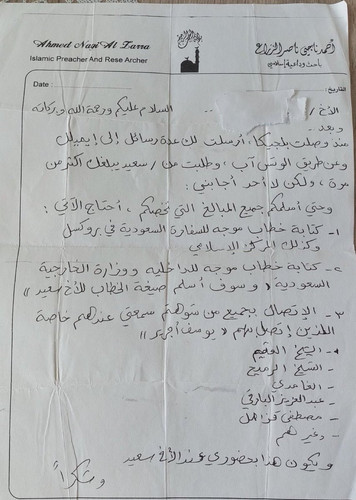 Ahmed Nagi Al Zarra
Islamic Preacher And Rese Archer
أحمد ناجي ناصر الزراع
باحث وداعية إسلامي
Date :
التاريخ :
الأخ / السلام عليكم ورحمة الله وبركاته
وبعد
منذ وصلت بلجيكا، أرسلت لك عدة رسائل إلى إيميلك
وعن طريق الوتس آب، وطلبت من / سعيد يبلغك أكثر من
مرة، ولكن لا أحد أجابني :
وحتى أسلمكم جميع المبالغ التي تخصكم، أحتاج الآتي :
١- كتابة خطاب موجه للسفارة السعودية في بروكسل
وكذلك المركز الإسلامي
٢- كتابة خطاب موجه للداخلية ووزارة الخارجية
السعودية « وسوف أسلم صيغة الخطاب للأخ سعيد »
٣- الإتصال بجميع من شوهتم سمعتي عندهم خاصة
اللذين إتصل بهم « يوسف أجرير »
- الشيخ المقيم
- الشيخ الرميح
- الغامدي
- عبدالعزيز البارقي
- مصطفى
- وغيرهم
ويكون هذا بحضوري عند الأخ سعيد
وشكراً